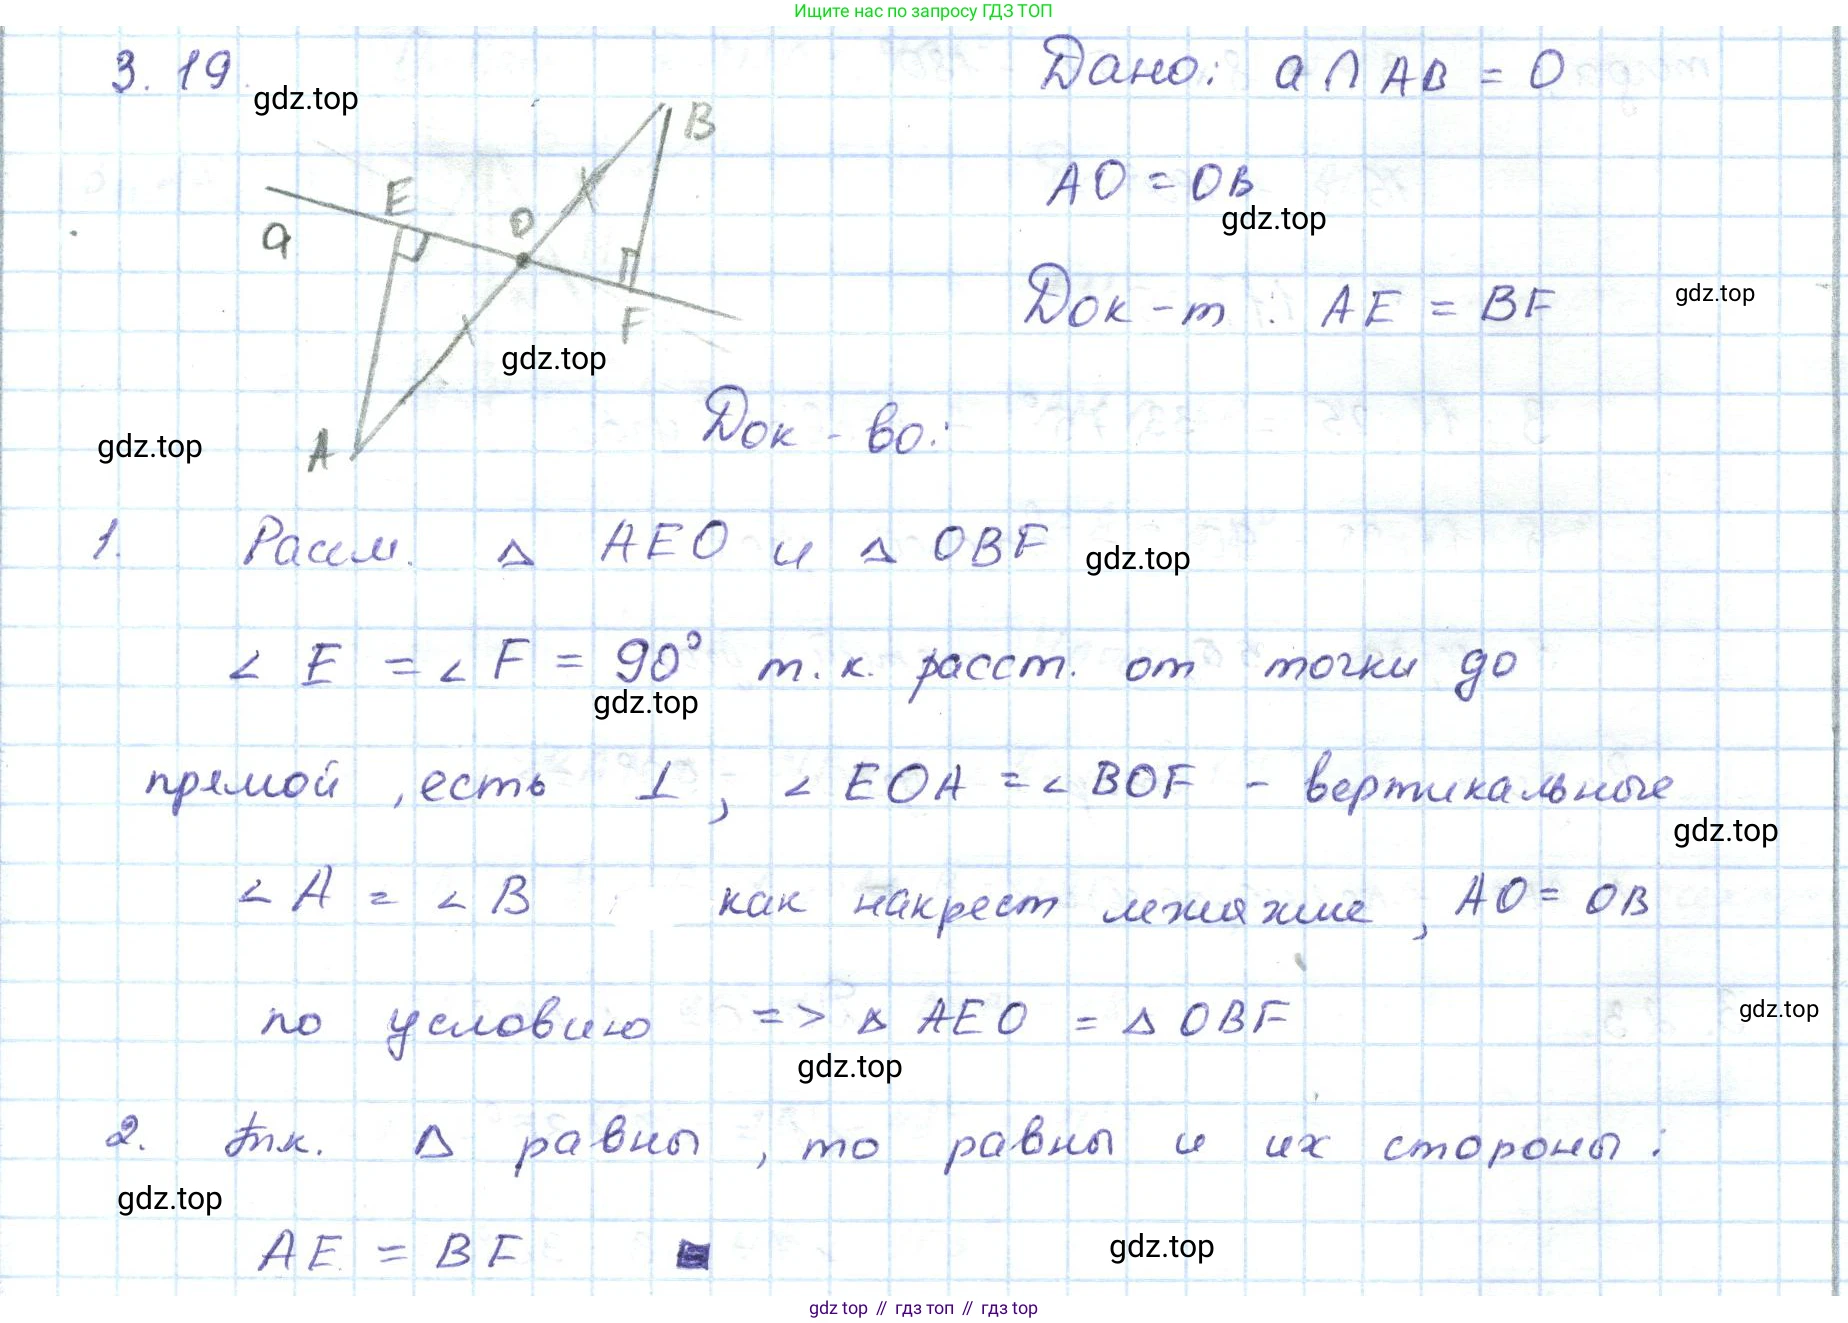 Ищите нас по запросу ГДЗ ТОП
3.19
gdz.top
Дано: a ∩ AB = O
B
AO = OB
gdz.top
E
O
a
Док-т: AE = BF
gdz.top
F
gdz.top
A
gdz.top
Док-во:
1. Рассм. △ AEO и △ OBF
gdz.top
∠ E = ∠ F = 90° т.к. расст. от точки до
gdz.top
прямой, есть ⊥, ∠ EOA = ∠ BOF - вертикальные
gdz.top
∠ A = ∠ B как накрест лежащие, AO = OB
по условию => △ AEO = △ OBF
gdz.top
gdz.top
2. Т.к. △ равны, то равны и их стороны:
gdz.top
AE = BF
gdz.top
gdz top // гдз топ // gdz top